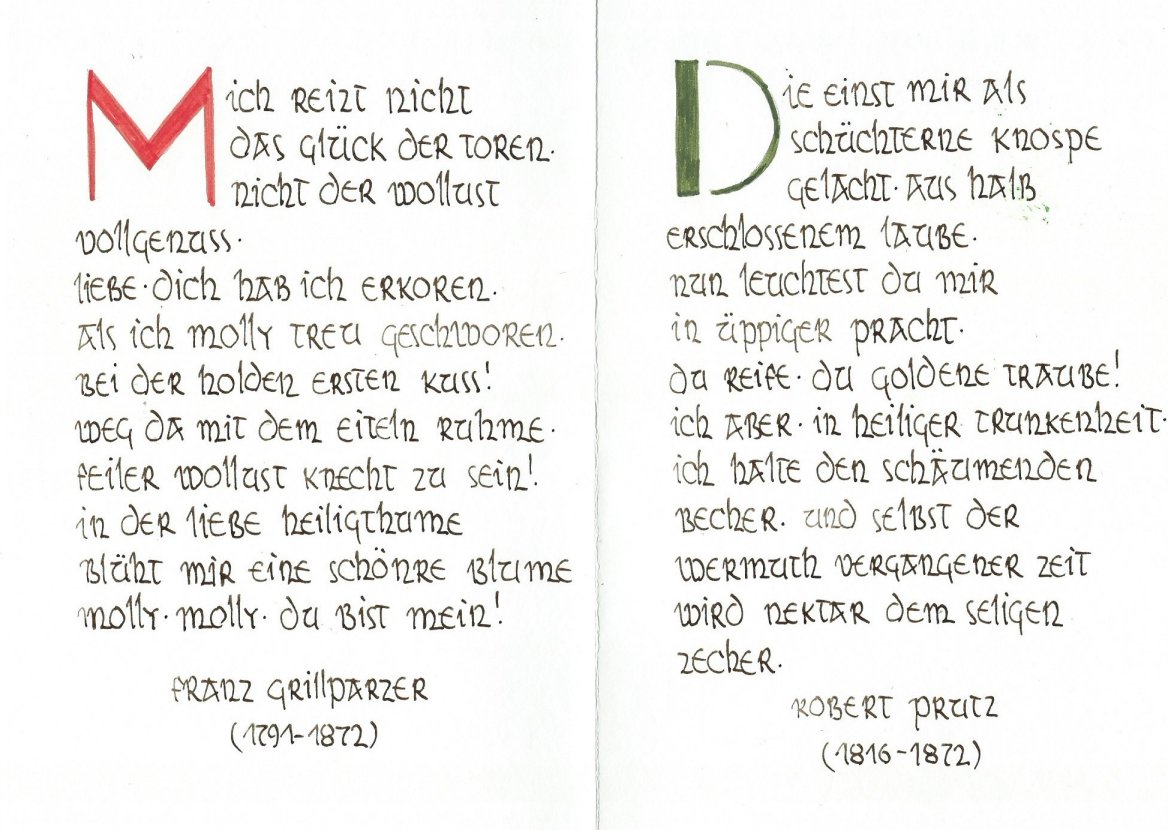 Mich reizt nicht
das Glück der Toren·
nicht der Wollust
Vollgenuss·
Liebe·dich hab ich erkoren·
Als ich Molly treu geschworen·
Bei der holden ersten Kuss!
Weg da mit dem eiteln Ruhme·
feiler Wollust Knecht zu sein!
in der Liebe Heiligthume
Blüht mir eine schönre Blume
Molly·Molly·du bist mein!
Franz Grillparzer
(1791-1872)
Die einst mir als
schüchterne Knospe
gelacht·aus halb
erschlossenem Laube·
nun leuchtest du mir
in üppiger Pracht·
du reife·du goldene Traube!
ich aber·in heiliger Trunkenheit·
ich halte den schäumenden
Becher· und selbst der
Wermuth vergangener Zeit
wird Nektar dem seligen
Zecher·
Robert Prutz
(1816-1872)